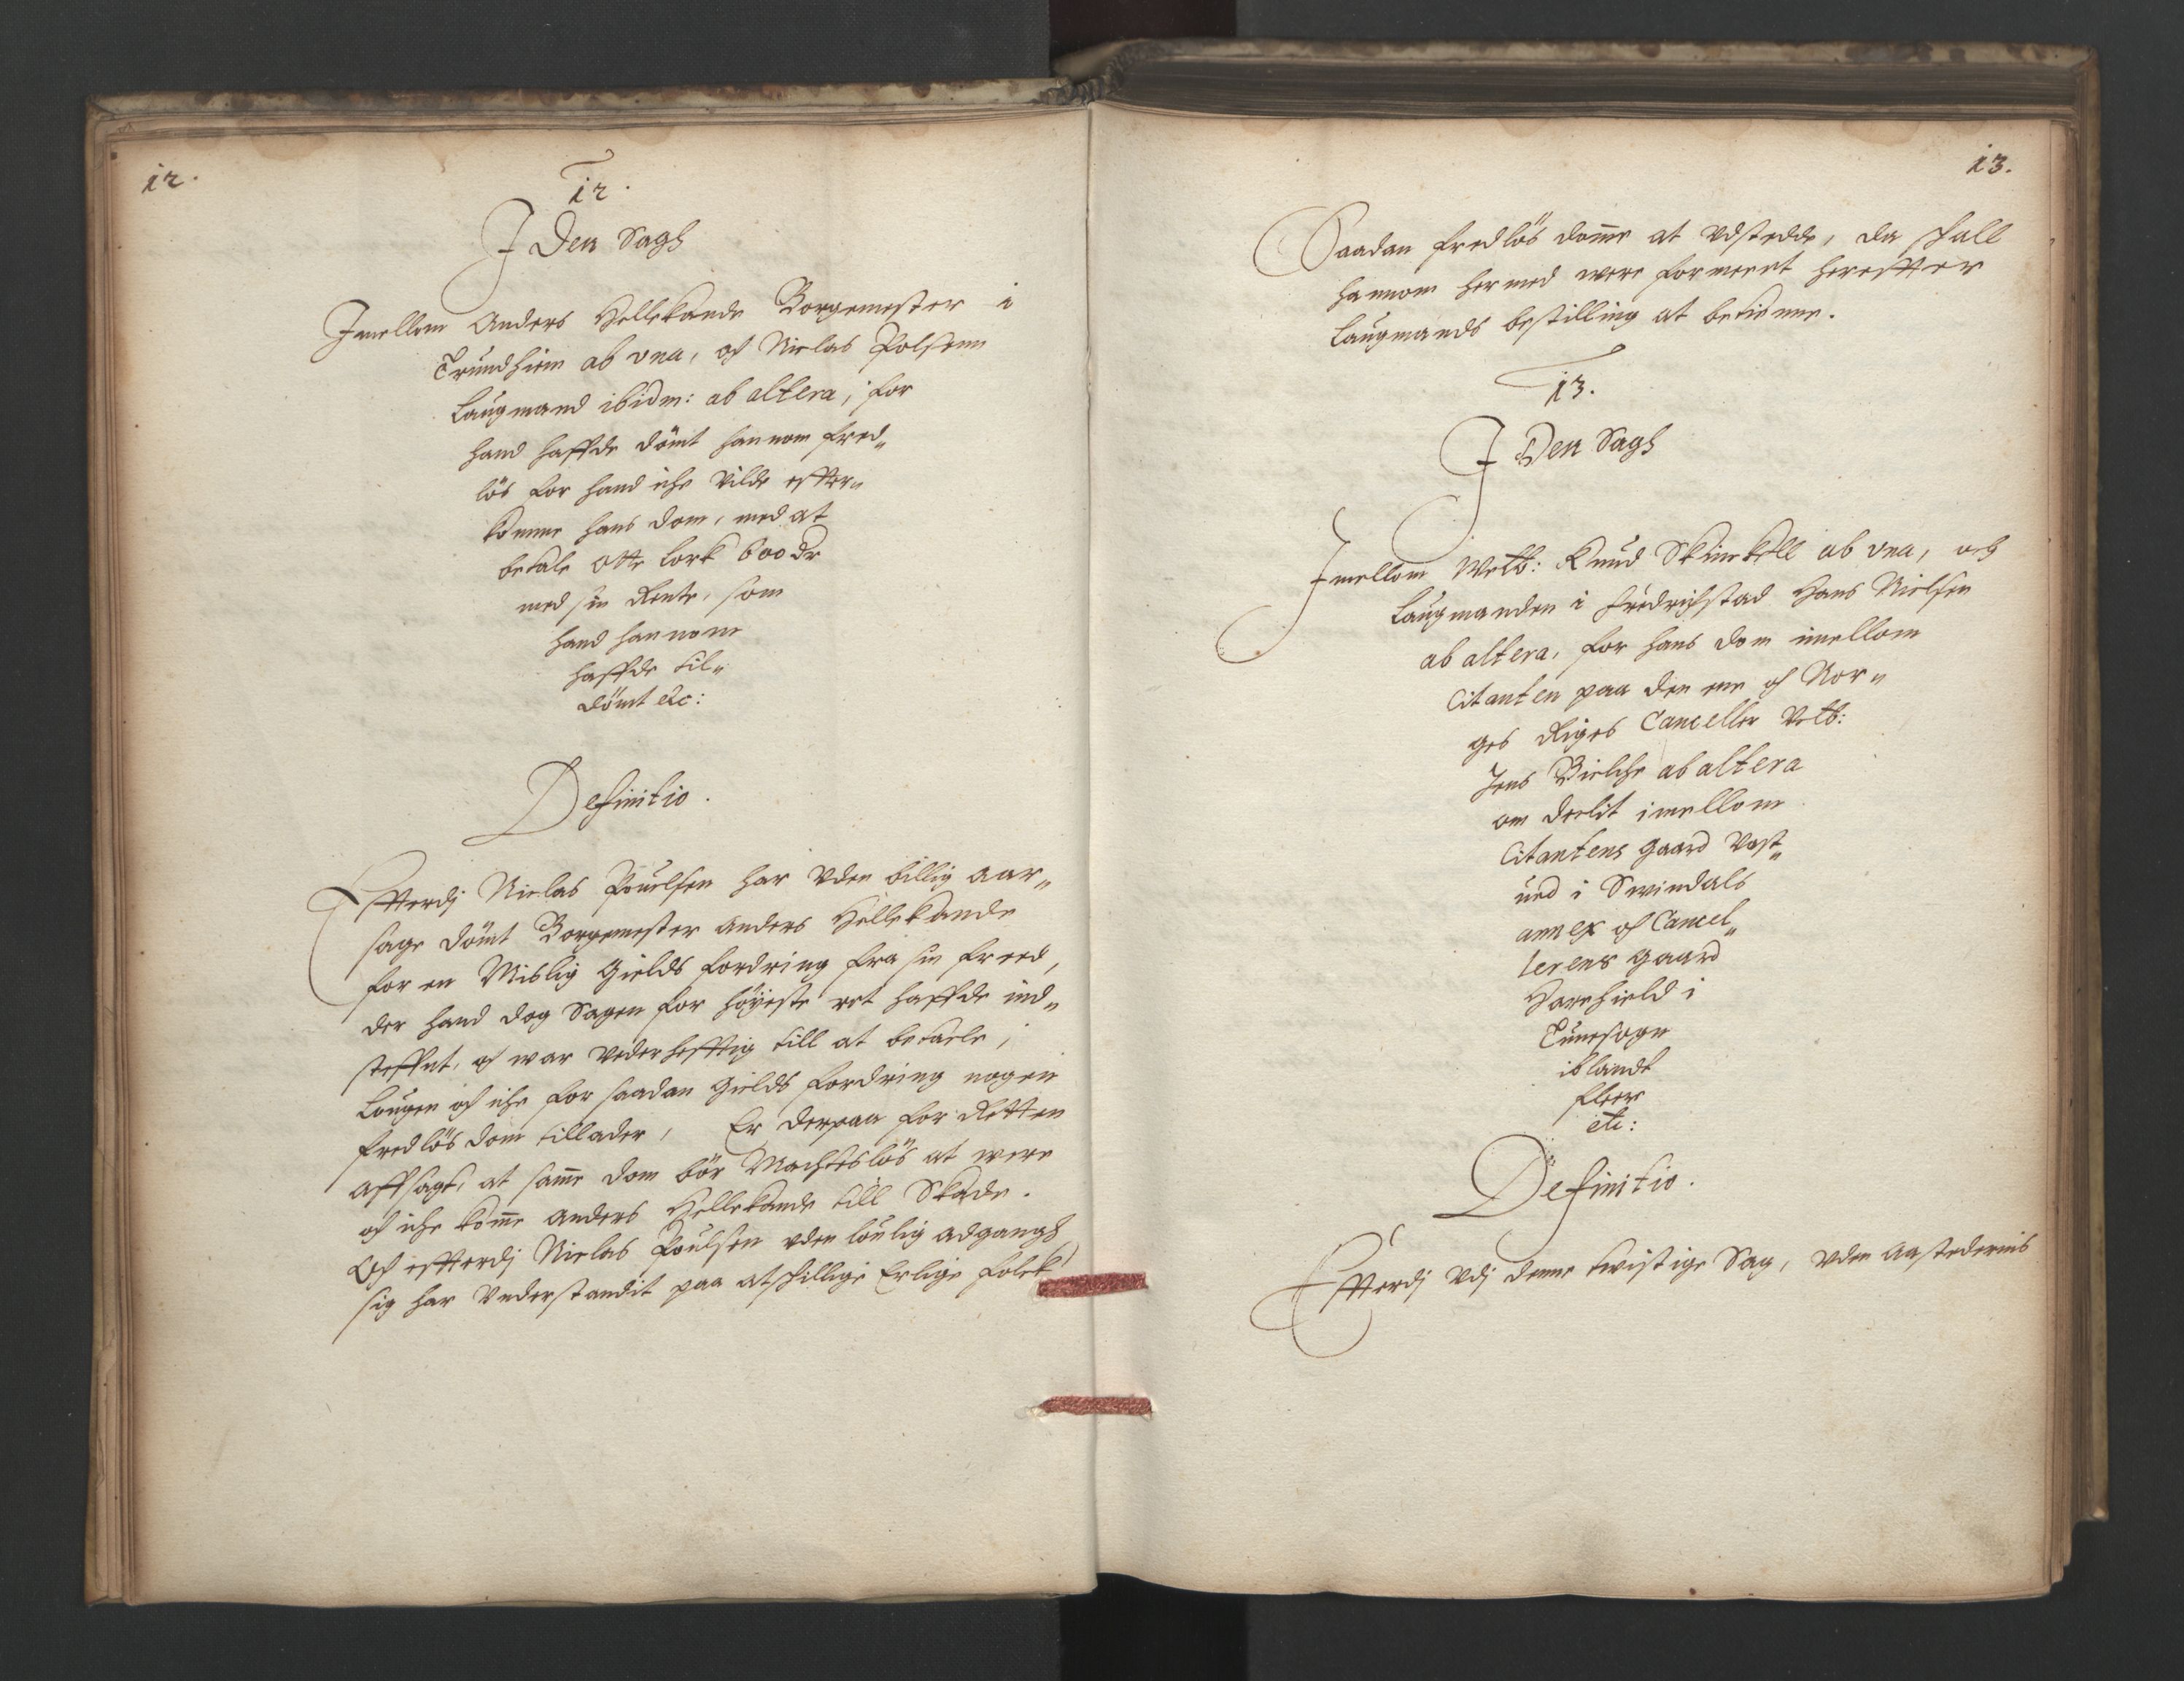 12.
12.
J Den Sagh
Jmellom Anders Hellekande Borgemester i
Trundhiem ab vna, og Nielas Polsenn
Laugmand ibidm: ab altera, for
hand haffde dömt hannom fred„
lös for hand iche vilde effter„
komme hans dom, med at
betale Otte Lork 600 dr
med sin Rente, som
hand hannom
haffde til„
dömt etc:
Definitio.
Effterdj Nielas Pouelsen har vden billig aar„
sage dömt Borgemester Anders Hellekande
for en Mislig Gields fordring fra sin freed,
der hand dog Sagen for höyeste ret haffde ind„
steffnt, og war vederhefftig till at betaele,
Lougen og iche for saadan Gields fordring nogen
fredlös dom tillader, Er derpaa for Retten
affsagt, at same dom bör Machteslös at were
og iche kome Anders Hellekande till Skade.
Og effterdj Nielas Poulsen vden loulig adgangh
sig har Vnderstandit paa atskillige Erlige folck
13.
Saadan fredlös dome at vdstedde, da skall
hannom hermed were formeent hereffter
Laugmands bestilling at betienne.
13.
J Den Sagh
Jmellom Welb: Knud Skinckell ab vna, och
Laugmanden i Fredrichstad Hans Nielsen
ab altera, for hans dom imellom
Citanten paa den ene og Nor„
ges Riges Canceller Velb:
Jens Bielche ab altera
om deelit imellom
Citantens gaard Vest„
ued i Swindals
annex og Cancel„
lerens gaard
Harehield i
Tunesogn
iblandt
fleer
etc:
Definitio.
Effterdj vdj denne twistige Sag, vden Aastedernis